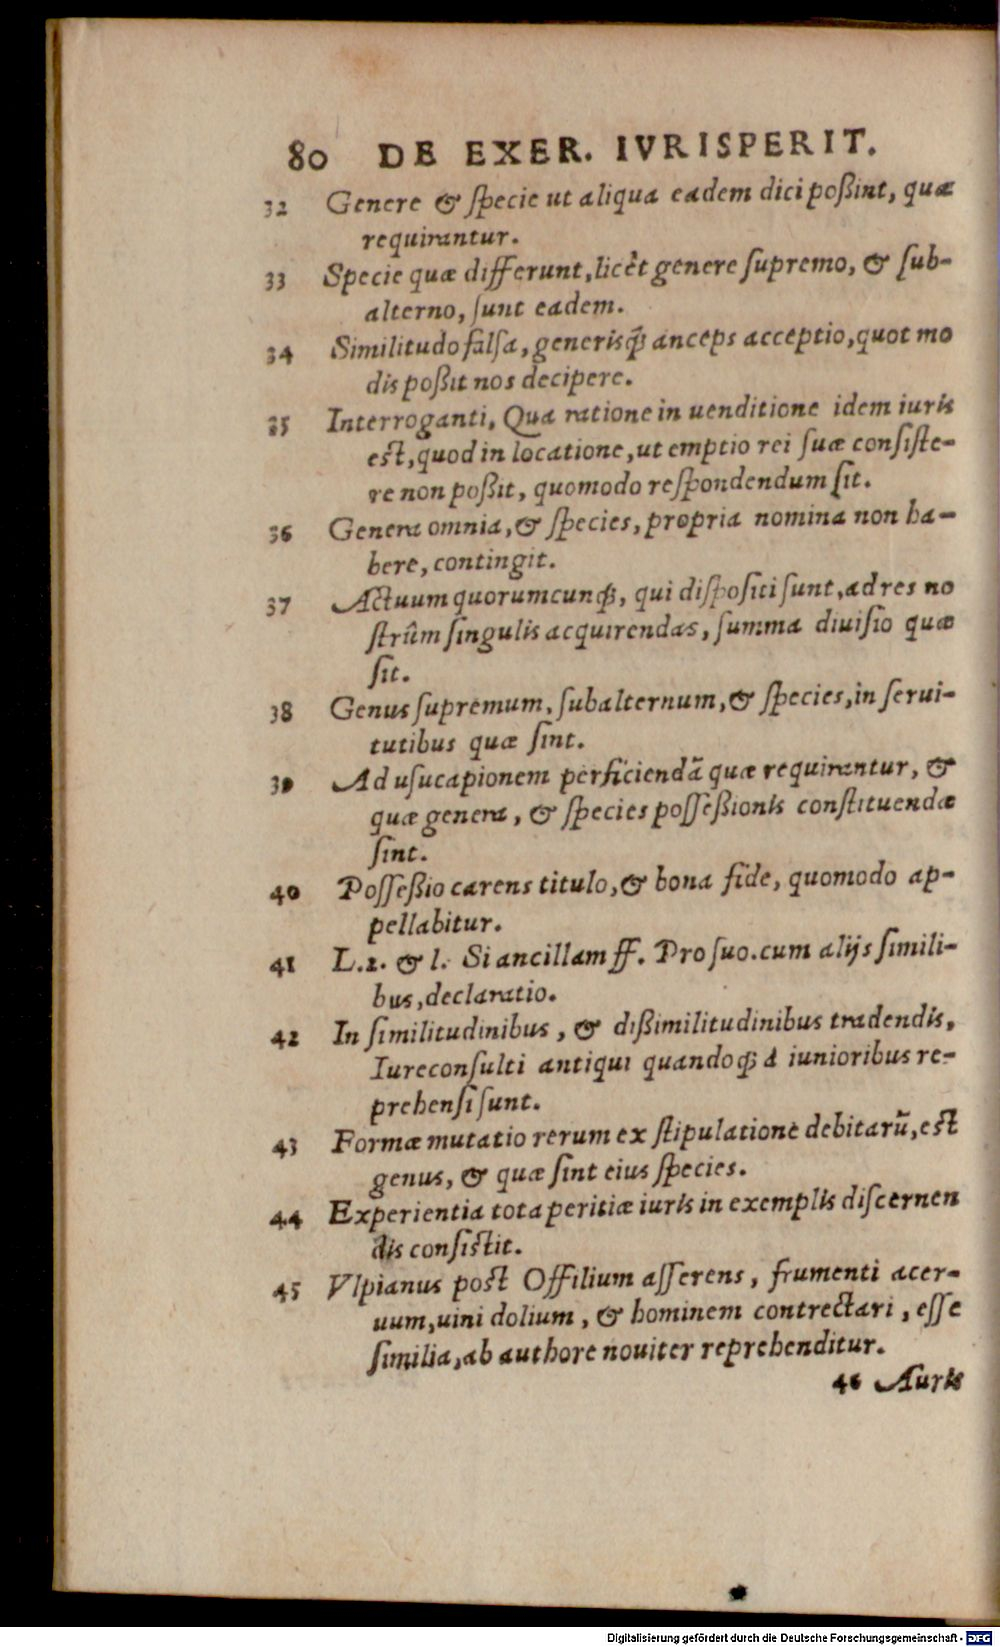 80 DE EXER. IVRISPERIT.
32 Genere & ſpecie ut aliqua eadem dici poßint, quæ
requirantur.
33 Specie quæ differunt, licèt genere ſupremo, & ſub-
alterno, ſunt eadem.
34 Similitudo falſa, generisq́; anceps acceptio, quot mo
dis poßit nos decipere.
35 Interroganti, Qua ratione in uenditione idem iuris
est, quod in locatione, ut emptio rei ſuæ conſiſte-
re non poßit, quomodo reſpondendum ſit.
36 Genera omnia, & ſpecies, propria nomina non ha-
bere, contingit.
37 Actuum quorumcunq́;, qui diſpoſiti ſunt, ad res no
ſtrûm ſingulis acquirendas, ſumma diuiſio quæ
ſit.
38 Genus ſupremum, ſubalternum, & ſpecies, in ſerui-
tutibus quæ ſint.
39 Ad uſucapionem perficiendā quæ requirantur, &
quæ genera, & ſpecies poſſeßionis conſtituendæ
ſint.
40 Poſſeßio carens titulo, & bona fide, quomodo ap-
pellabitur.
41 L.2. & l. Si ancillam ff. Pro ſuo. cum alijs ſimili-
bus, declaratio.
42 In ſimilitudinibus, & dißimilitudinibus tradendis,
Iureconſulti antiqui quandoq́; à iunioribus re-
prehenſi ſunt.
43 Formæ mutatio rerum ex ſtipulatione debitarū, est
genus, & quæ ſint eius ſpecies.
44 Experientia tota peritiæ iuris in exemplis diſcernen
dis conſistit.
45 Vlpianus post Offilium aſſerens, frumenti acer-
uum, uini dolium, & hominem contrectari, eſſe
ſimilia, ab authore nouiter reprehenditur.
46 Auris
Digitalisierung gefördert durch die Deutsche Forschungsgemeinschaft - DFG